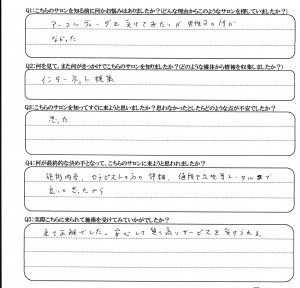 Q1:こちらのサロンを知る前に何かお悩みはありましたか？(どんな理由からこのようなサロンを探していましたか？)
アーユルヴェーダを受けてみたいが男性可の所が
なかった
Q2:何を見て、また何がきっかけでこちらのサロンを知りましたか？(どのような媒体から情報を収集しましたか？)
インターネット検索
Q3:こちらのサロンを知ってすぐに来ようと思いましたか？思わなかったとしたらどのような点が不安でしたか？
思った
Q4:何が最終的な決め手となって、こちらのサロンに来ようと思われましたか？
施術内容、セラピストの方の詳細、値段や立地等トータルで
良いと思ったから
Q5:実際こちらに来られて施術を受けてみていかがでしたか？
来て正解でした。安心して質の高いサービスを受けられる。